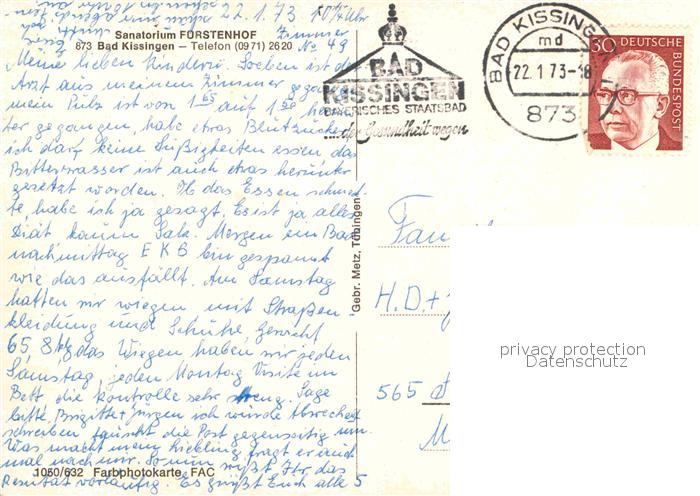 22.1.73
Sanatorium FÜRSTENHOF Zimmer
873 Bad Kissingen – Telefon (0971) 2620 No 49
Meine lieben Kinder! Soeben ist der
Arzt aus meinem Zimmer gegangen
mein Puls ist von 1 65 auf 1 50
gegangen, habe etwas Blutzucker
ich darf keine Süßigkeiten essen, das
Bitterwasser ist auch etwas herunter
gesetzt worden. das Essen schmeck
te habe ich ja gesagt. Es ist ja alles
Diät kaum Salz. Morgen ein Bad
nachmittag EKG bin gespannt
wie das ausfällt. Am Samstag
hatten wir wiegen mit Straßen
kleidung und Schuhe Gewicht
65,8 kg das Wiegen haben wir jeden
Samstag, jeden Montag Visite im
Bett die Kontrolle sehr streng. Sage
bitte, Brigitte + Jürgen ich würde Abwechselnd
schreiben, tauscht die Post gegenseitig um.
Was macht mein Liebling fragt er auch
mal nach mir. So nun wißt Ihr das
1050/632 Farbphotokarte FAC
Resultat vorläufig. Es grüßt Euch alle
Gebr. Metz, Tübingen
BAD
KISSINGEN
BAYERISCHES STAATSBAD
...der Gesundheit wegen
BAD KISSINGEN
md
22.1.73-18
873
30 DEUTSCHE
BUNDESPOST
Fam
H.D. +
565
M
privacy protection
Datenschutz